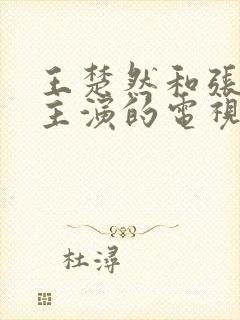 王楚然和張
主演的電視
杜潯